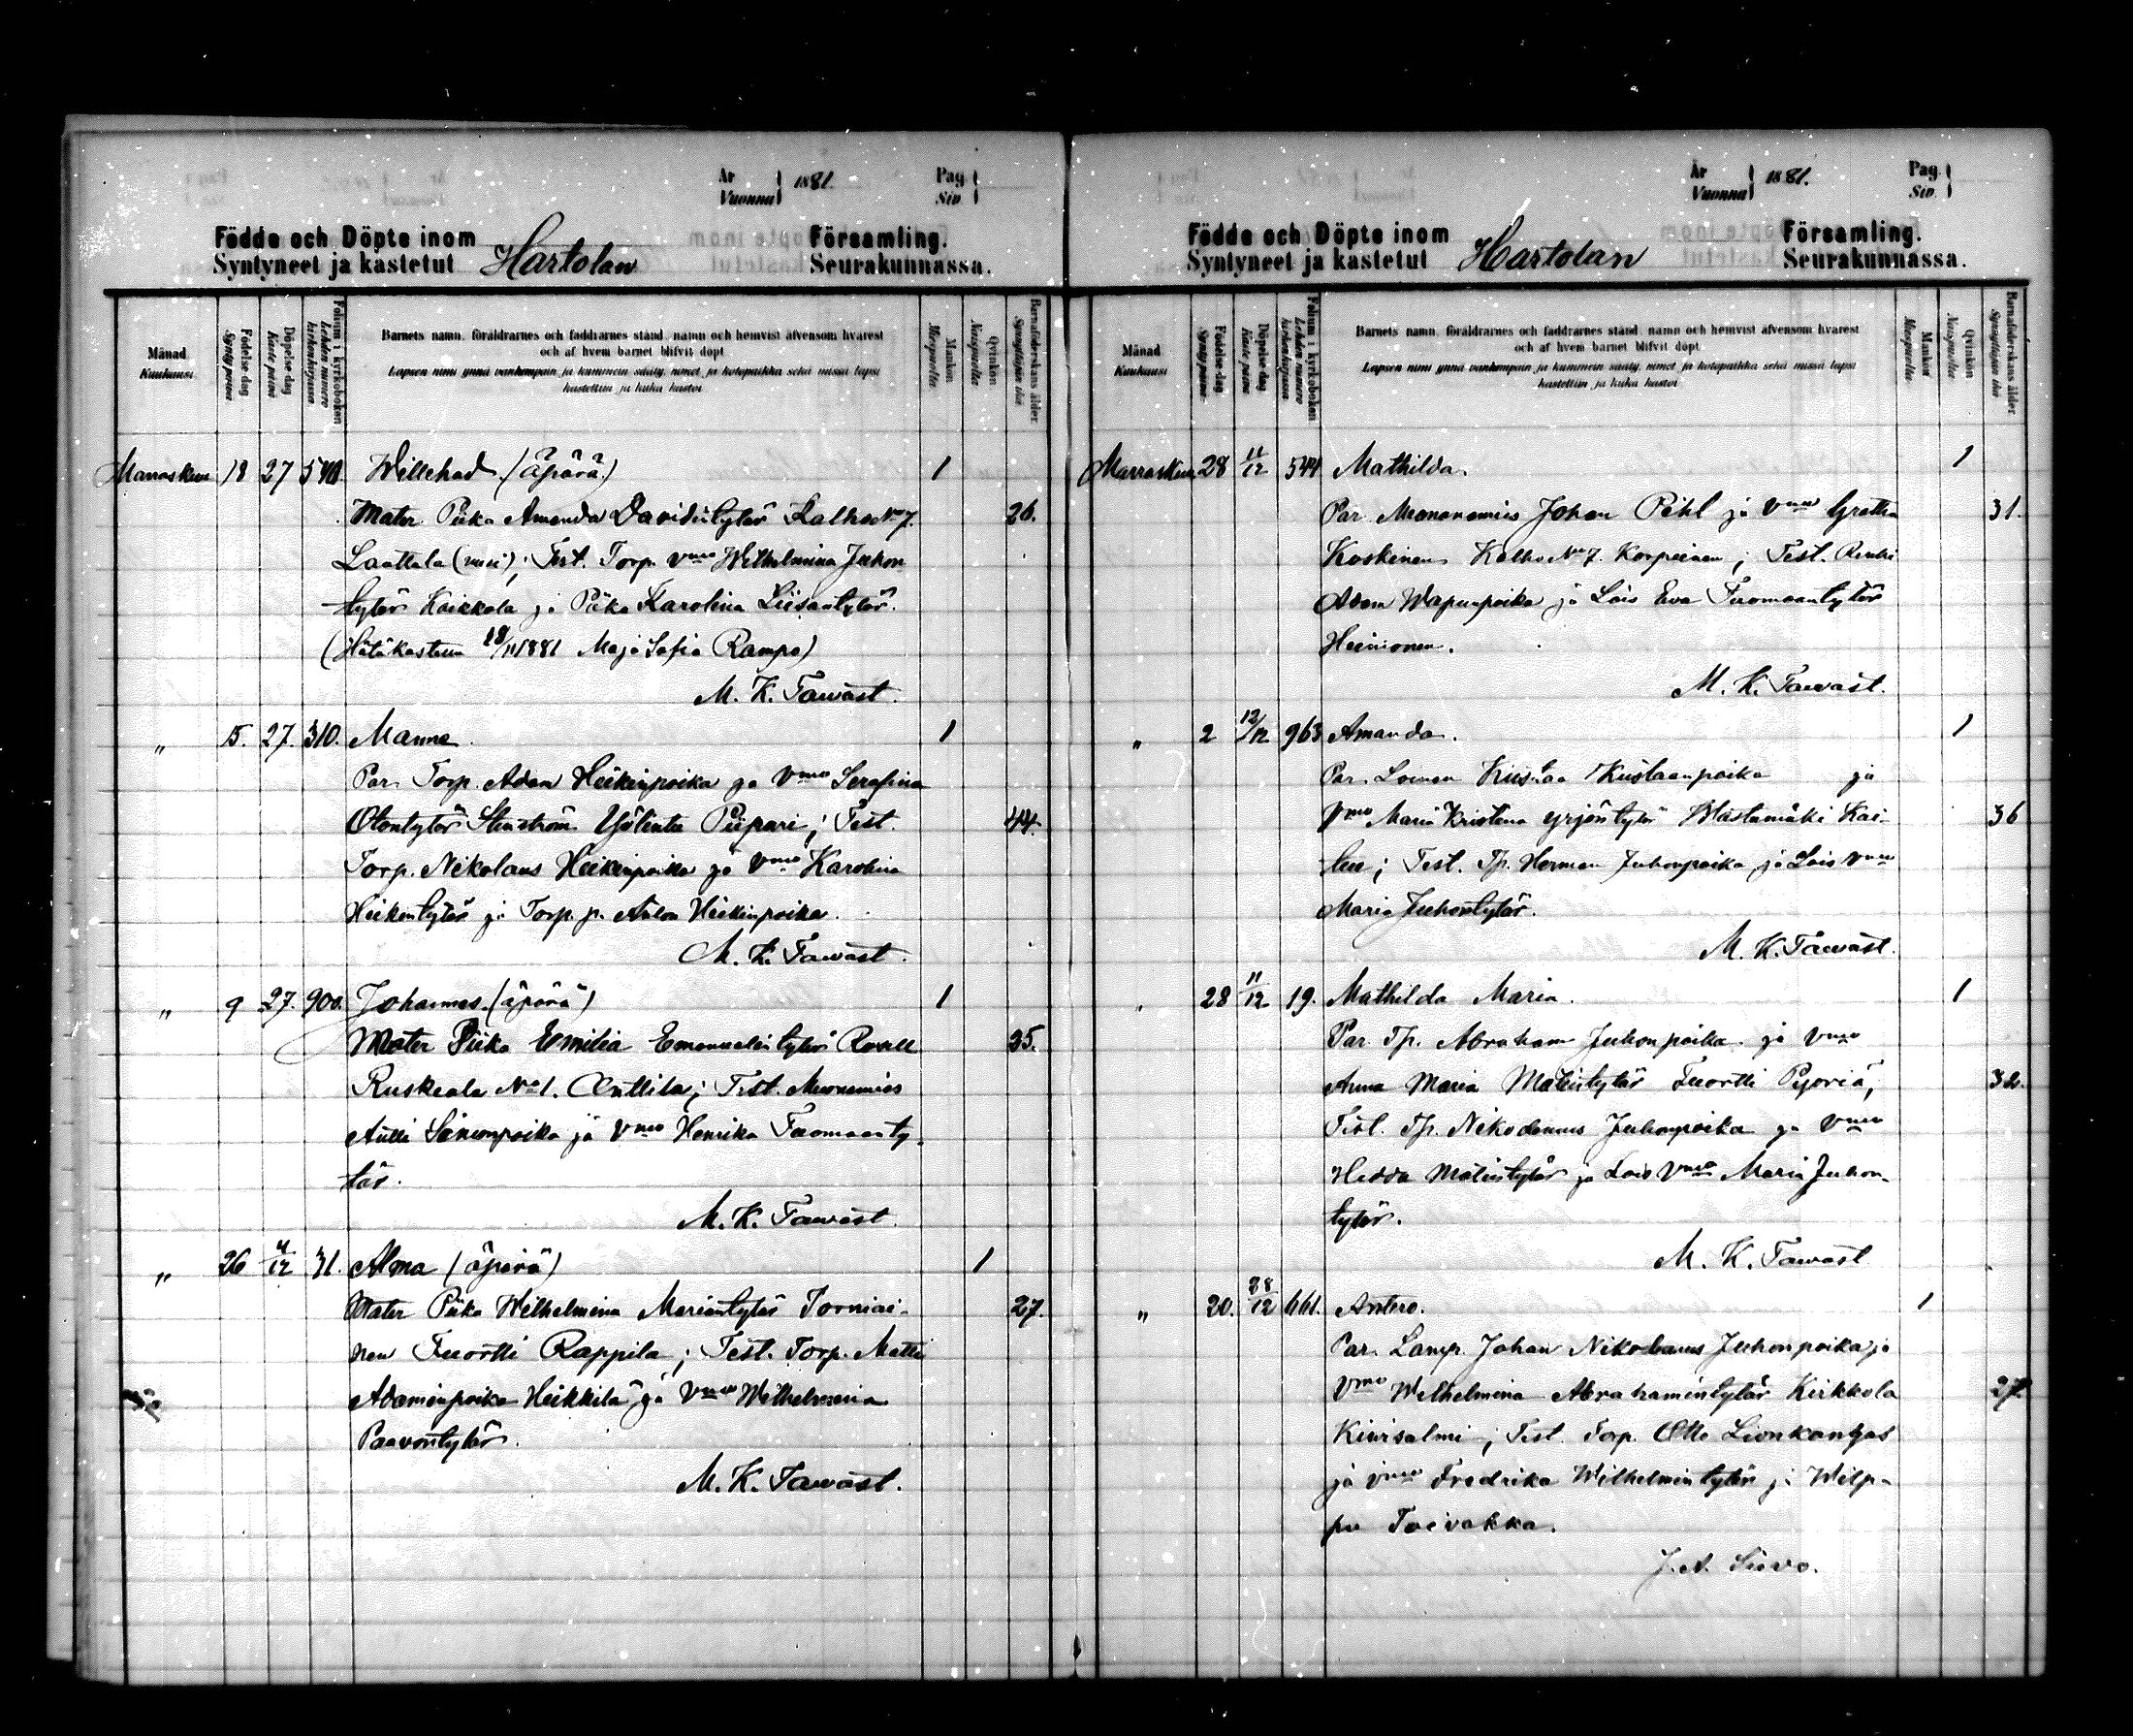 År
Vuonna 1881.
Pag.
Siv.
Födde och Döpte inom
Syntyneet ja kastetut Hartolan
Församling.
Seurakunnassa.
Månad.
Kuukausi
Födelse dag
Syntypäivä
Döpelse dag
Kaste päivä
Folium i kyrkoboken
Lehden numero kirkonkirjassa
Barnets namn, föräldrarnes och faddrarnes stånd, namn och hemvist äfvensom hvarest
och af hvem barnet blifvit döpt
Lapsen nimi ynnä vanhempain ja kummein sääty, nimet ja kotopaikka sekä missä lapsi
kastettiin ja kuka kastoi
Mankön
Miespuolta
Qvinkön
Naispuolta
Barnaföderskans ålder
Synnyttäjän ikä
Marraskuu 18 27 Willehad. (äpärä) 1
Mater Piika Amanda Davidintytär Kalho No 7. 26.
Laattala (uusi); Test. Torp. vmo Wilhelmina Juhon
tytär Kaikkola ja Piika Karolina Liisantytär.
(Hätäkasteen 18/11 1881 Maja Sofia Rampa)
M. K. Tawast.
" 15. 27. 310. Manne. 1
Par. Torp. Adam Heikinpoika ja Vmo Serafina
Otontytär Stenström Yölintu Piipari; Test. 44.
Torp. Nikolaus Heikinpoika ja Vmo Karolina
Heikintytär ja Torp. p. Anton Heikinpoika.
M. K. Tawast.
" 9 27. 900. Johannes. (äpärä) 1
Mater Piika Emilia Emanuelintytär 25.
Ruskeala No 1. Anttila; Test. Muonamies
Antti Simonpoika ja Vmo Henrika Tuomaanty-
tär.
M. K. Tawast.
" 26 4/12 31. Alma (äpärä) 1
Mater Piika Wilhelmina Mariantytär Torniai- 27.
nen Tuortti Rappila; Test. Torp. Matti
Adaminpoika Heikkilä ja Vmo Wilhelmiina
Paavontytär.
M. K. Tawast.
År
Vuonna 1881.
Pag.
Siv.
Födde och Döpte inom
Syntyneet ja kastetut Hartolan
Församling.
Seurakunnassa.
Månad
Kuukausi
Födelse dag
Syntypäivä
Döpelse dag
Kaste päivä
Folium i kyrkoboken
Lehden numero kirkonkirjassa
Barnets namn, föräldrarnes och faddrarnes stånd, namn och hemvist äfvensom hvarest
och af hvem barnet blifvit döpt
Lapsen nimi ynnä vanhempain ja kummein sääty, nimet ja kotopaikka sekä missä lapsi
kastettiin ja kuka kastoi
Mankön
Miespuolta
Qvinkön
Naispuolta
Barnaföderskans ålder
Synnyttäjän ikä
Marraskuu 28 11/12 544 Mathilda. 1
Par. Muonamies Johan Pihl ja vmo Gretha 31.
Koskinen Kalho No 7. Korpeinen; Test. Renki
Adam Wapunpoika ja Lois Eva Tuomaantytär
Heinonen.
M. K. Tawast.
" 2 12/12 963 Amanda. 1
Par. Loinen Kustaa Kustaanpoika ja
Vmo Maria Kristina Yrjöntytär Wastamäki Kai- 36
; Test. Tp. Herman Juhonpoika ja Lois vmo
Maria Juhontytär.
M. K. Tawast.
28 11/12 19. Mathilda Maria. 1
Par. Tp. Abraham Juhonpoika ja vmo
Anna Maria Matintytär Tuortti Pyöriä; 32.
Test. Tp. Nikodemus Juhonpoika ja Vmo
Hedda Matintytär ja Lois Vmo Maria Juhon-
tytär.
M. K. Tawast
" 20. 28/12 661. Antero. 1
Par. Lamp. Johan Nikolaus Juhonpoika ja
Vmo Wilhelmina Abrahamintytär Kirkkola 27.
Kiurisalmi; Test. Torp. Otto Lionkangas
ja vmo Fredrika Wilhelmintytär ja Wilp-
pu Toivakka.
J. A. Siewo.